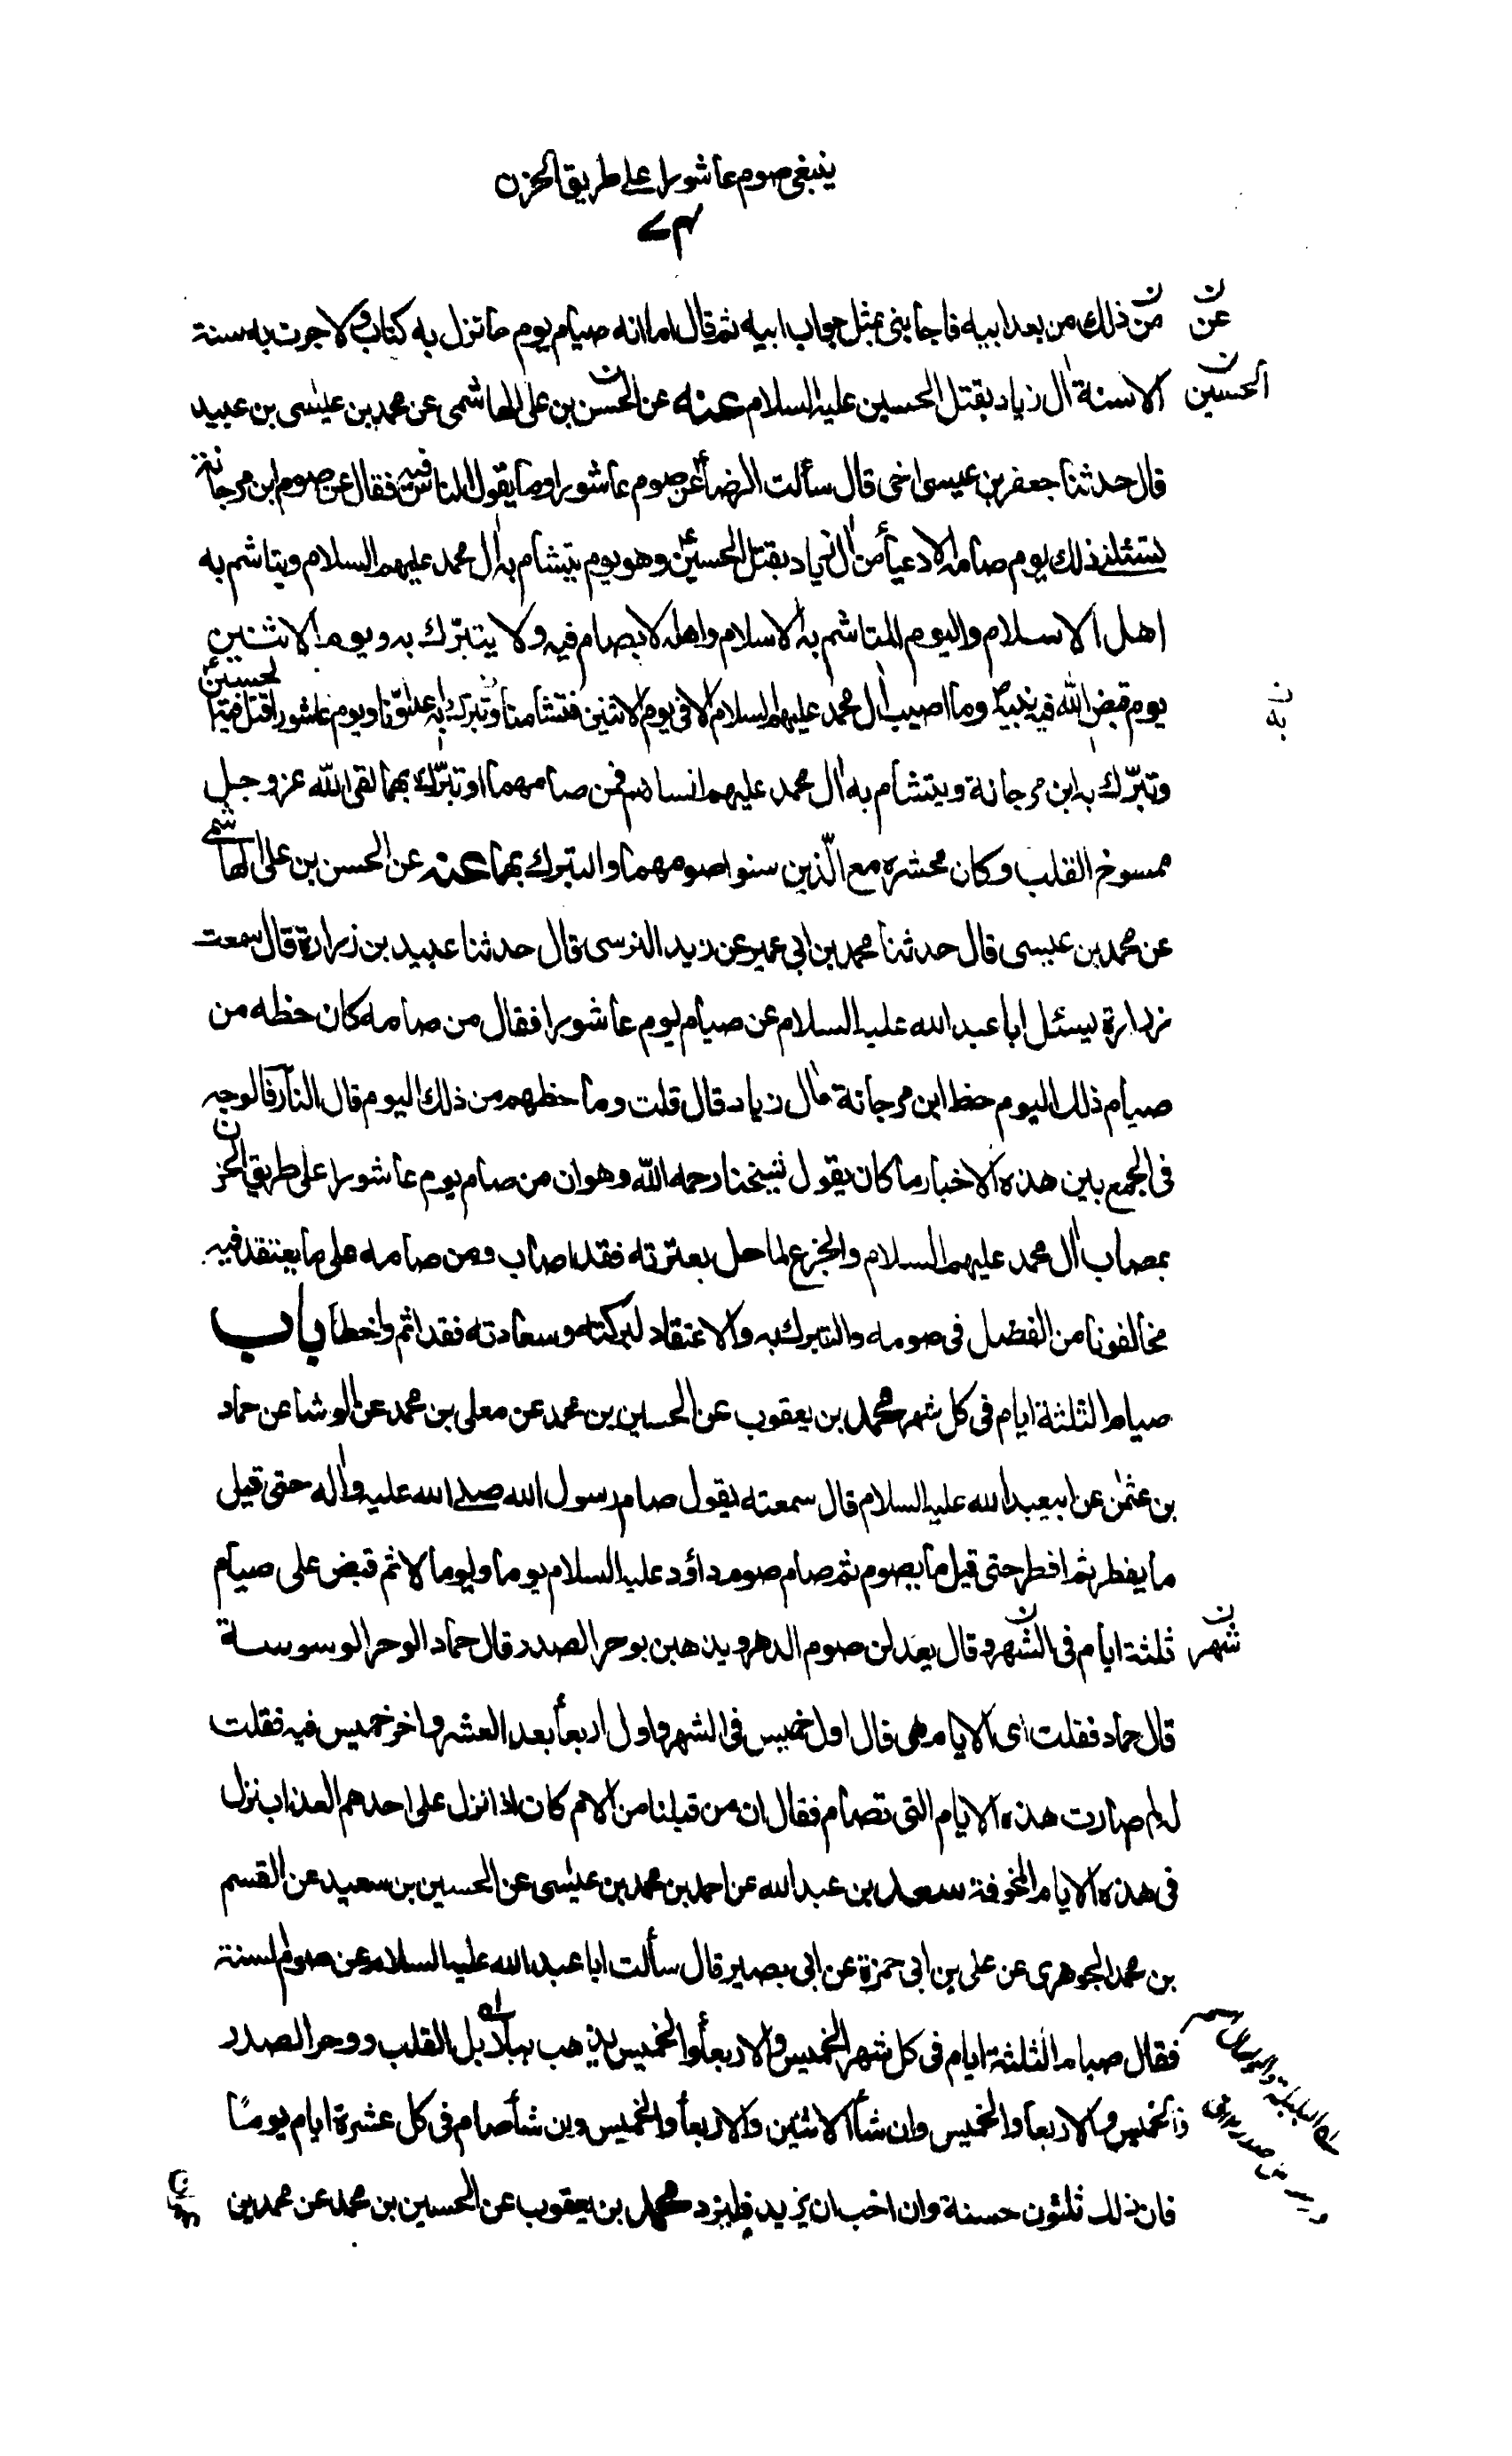 ينبغي صوم عاشورا على طريق الحزن
عن ذلك من بعد ابيه فاجابنى بمثل جواب ابيه ثم قال اما انه صيام يوم ما نزل به كتاب ولا جرت به سنة
عن
الا سنة اٰل زياد بقتل الحسين عليه السلام عنه عن الحسن بن على الهاشمى عن محمد بن عيسى بن عبيد
الحسين
قال حدثنا جعفر بن عيسى اخى قال سألت الرضا عن صوم عاشورا وما يقول الناس فيه فقال عن صوم ابن مرجانة
تسئلنى ذلك يوم صامه الادعيأ من اٰل زياد بقتل الحسين وهو يوم يتشام به اٰل محمد عليهم السلام ويتاشم به
اهل الاسلام واليوم المتاشم به الاسلام واهله لا يصام فيه ولا يتبرّك به ويوم الاثنين
يوم قبض الله فيه نبيه وما اصيب اٰل محمد عليهم السلام الا فى يوم الاثنين فتشامنا وتبرك به عدوّنا ويوم عاشورا قتل فيه الحسين
به
وتبرّك به ابن مرجانة ويتشام به اٰل محمد عليهم السلام فمن صامهما او تبرّك بهما لقى الله عز وجل
ممسوخ القلب وكان محشره مع الّذين سنوا صومهما والتبرك بهما عنه عن الحسن بن على الهاشمى
عن محمد بن عيسى قال حدثنا محمد بن ابى عمير عن زيد النرسى قال حدثنا عبيد بن زرارة قال سمعت
زرارة يسئل ابا عبد الله عليه السلام عن صيام يوم عاشورا فقال من صامه كان حظه من
صيام ذلك اليوم حظ ابن مرجانة واٰل زياد قال قلت وما حظهم من ذلك اليوم قال النار فالوجه
فى الجمع بين هذه الاخبار ما كان يقول شيخنا رحمه الله وهو ان من صام يوم عاشورا على طريق الحزن
بمصاب اٰل محمد عليهم السلام والجزع لما حل بعترته فقد اصاب ومن صامه على ما يعتقد فيه
مخالفونا من الفضل فى صومه والتبرك به والاعتقاد لبركته وسعادته فقد اثم واخطأ باب
صيام الثلثة ايام فى كل شهر محمد بن يعقوب عن الحسين بن محمد عن معلى بن محمد عن الوشا عن حماد
بن عثمٰن عن ابيعبد الله عليه السلام قال سمعته يقول صام رسول الله صلى الله عليه واٰله حتى قيل
ما يفطر ثم افطر حتى قيل ما يصوم ثم صام صوم داؤد عليه السلام يوما ويوما لا ثم قبض على صيام
ثلثة ايام فى الشهر وقال يعدلن صوم الدهر ويذهبن بوحر الصدر قال حماد الوحر الوسوسة
شهر
قال حماد فقلت اى الايام هى قال اول خميس فى الشهر واول اربعأ بعد العشر واخر خميس فيه فقلت
له لم صارت هذه الايام التى تصام فقال ان من قبلنا من الامم كان اذا نزل على احدهم العذاب نزل
فى هذه الايام المخوفة سعد بن عبد الله عن احمد بن محمد بن عيسٰى عن الحسين بن سعيد عن القسم
بن محمد الجوهرى عن على بن ابى حمزة عن ابى بصير قال سألت ابا عبد الله عليه السلام عن صوم السنة
فقال صيام الثلثة ايام فى كل شهر الخميس والاربعأ والخميس يذهب ببلابل القلب ووحر الصدر
الخميس والاربعا والخميس وان شأ الاثنين والاربعأ والخميس وان شأ صام فى كل عشرة ايام يومًا
فان ذلك ثلثون حسنة وان احب ان يزيد فليزد محمد بن يعقوب عن الحسين بن محمد عن محمد بن